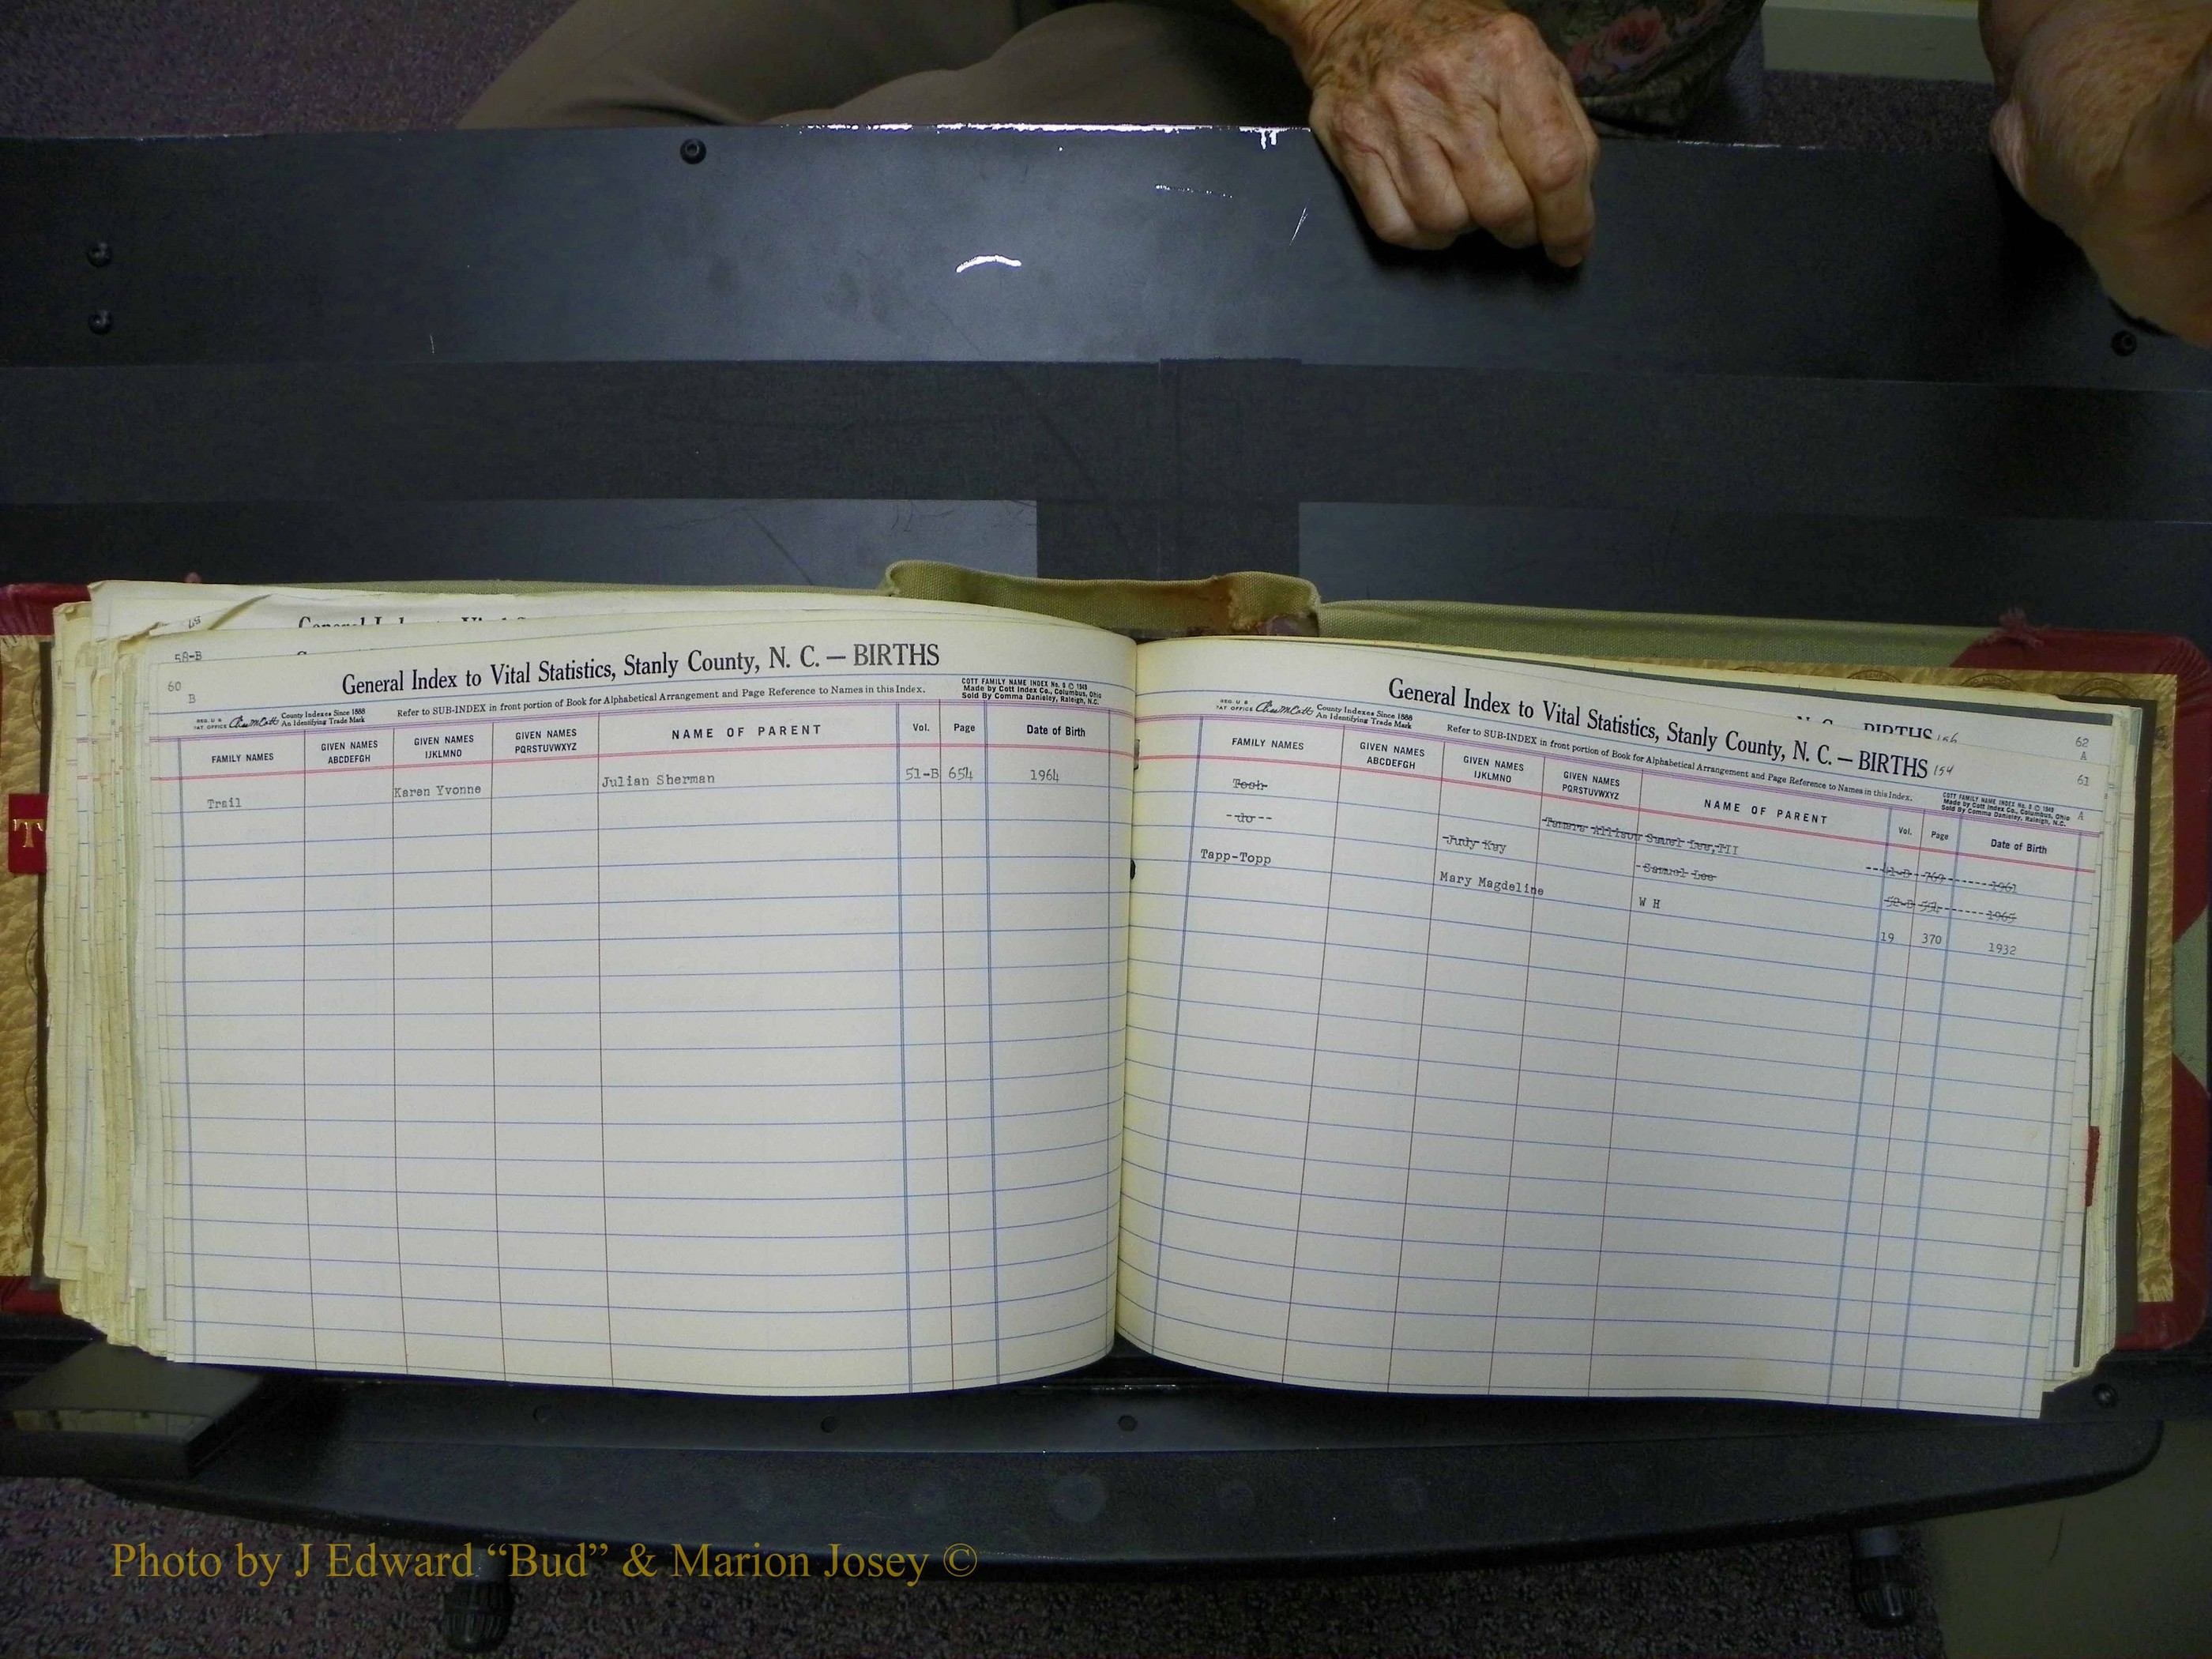 58-B
General Index to Vital Statistics, Stanly County, N. C. — BIRTHS
60
B
REG. U.S. PAT OFFICE County Indexes Since 1888 An Identifying Trade Mark
Refer to SUB-INDEX in front portion of Book for Alphabetical Arrangement and Page Reference to Names in this Index.
COTT FAMILY NAME INDEX No. 8 © 1949
Made by Cott Index Co., Columbus, Ohio
Sold By Comma Danieley, Raleigh, N.C.
FAMILY NAMES GIVEN NAMES ABCDEFGH GIVEN NAMES IJKLMNO GIVEN NAMES PQRSTUVWXYZ NAME OF PARENT Vol. Page Date of Birth
Trail Karen Yvonne Julian Sherman 51-B 654 1964
N. C. — BIRTHS 156
62
A
General Index to Vital Statistics, Stanly County, N. C. — BIRTHS 154
61
A
REG. U.S. PAT OFFICE County Indexes Since 1888 An Identifying Trade Mark
Refer to SUB-INDEX in front portion of Book for Alphabetical Arrangement and Page Reference to Names in this Index.
COTT FAMILY NAME INDEX No. 8 © 1949
Made by Cott Index Co., Columbus, Ohio
Sold By Comma Danieley, Raleigh, N.C.
FAMILY NAMES GIVEN NAMES ABCDEFGH GIVEN NAMES IJKLMNO GIVEN NAMES PQRSTUVWXYZ NAME OF PARENT Vol. Page Date of Birth
Tosh Tamara Allison Samuel Lee, III 769 1961
--do-- Judy Kay Samuel Lee 52-B 1965
Tapp-Topp Mary Magdeline W H 19 370 1932
Photo by J Edward “Bud” & Marion Josey ©